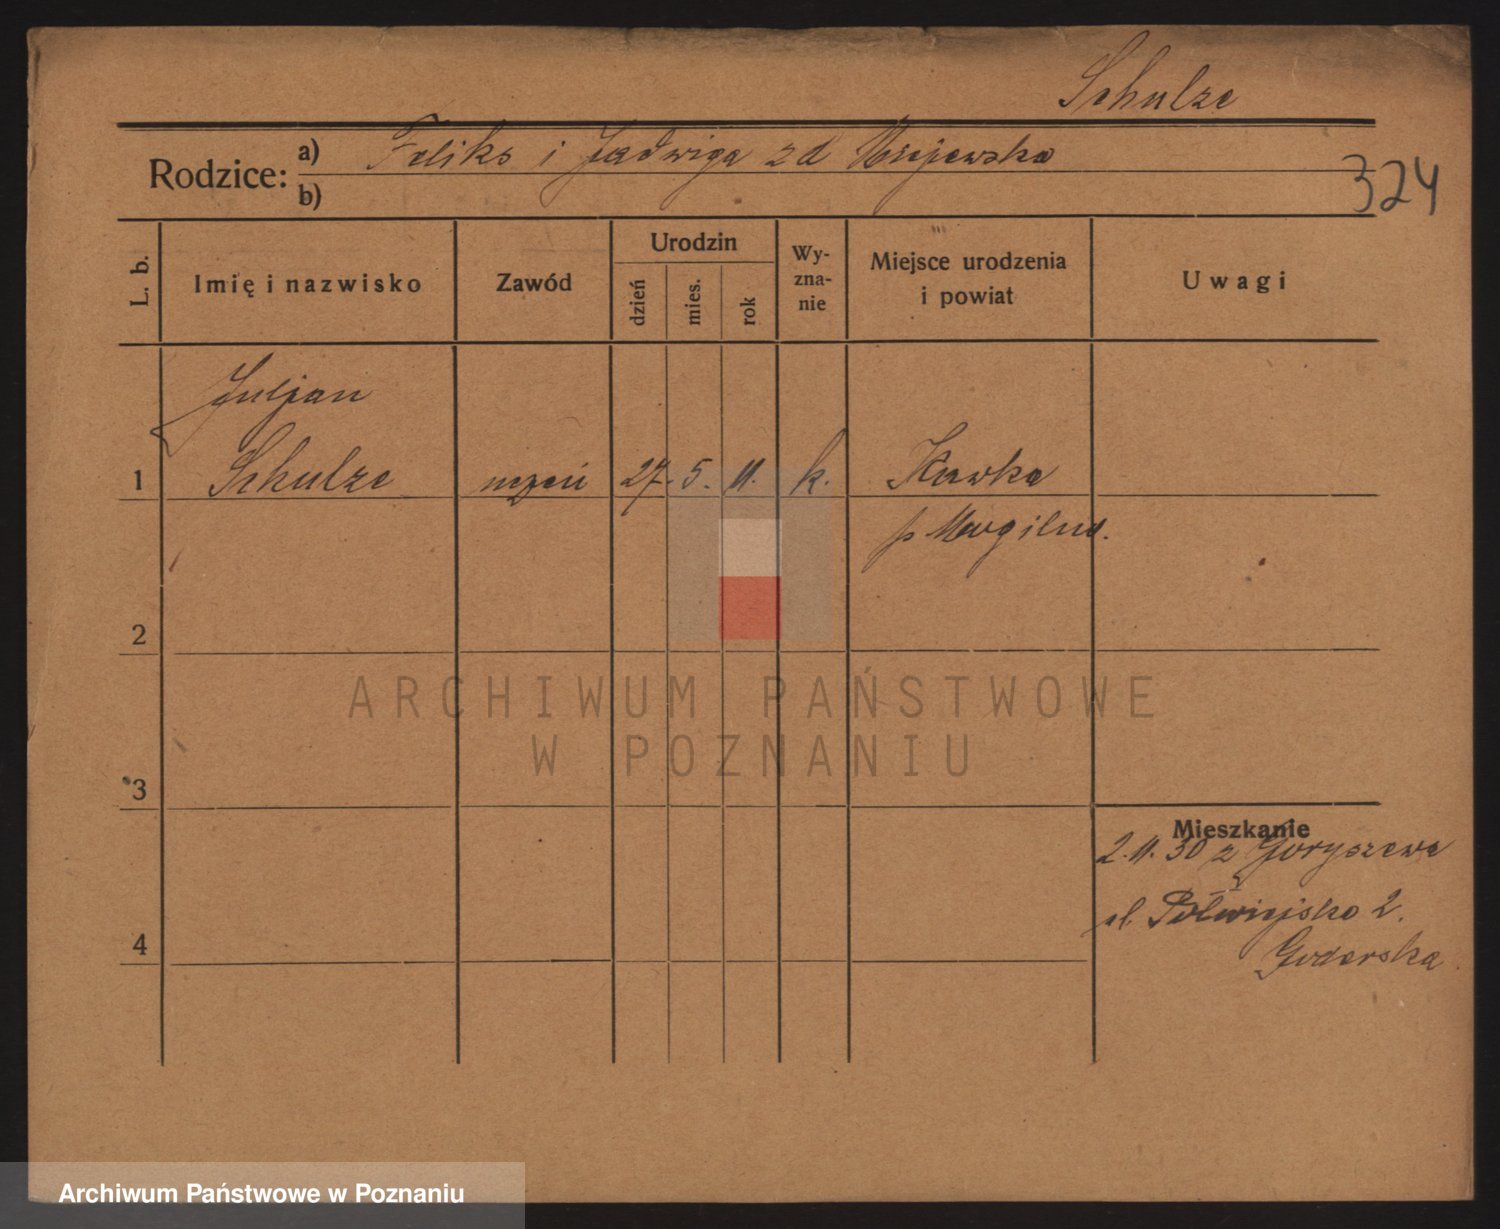 Schulze
Rodzice: a) Feliks i Jadwiga zd
b)
324
L. b.
Imię i nazwisko
Zawód
Urodzin
dzień
mies.
rok
Wy-
zna-
nie
Miejsce urodzenia
i powiat
Uwagi
Juljan
1 Schulze uczeń 27. 5. 11. k. Kawka
p Mogilno.
2
3
4
Mieszkanie
2.11.30 z Goryszewa
ul. Półwiejska 2.
Goderska
ARCHIWUM PAŃSTWOWE
W POZNANIU
Archiwum Państwowe w Poznaniu